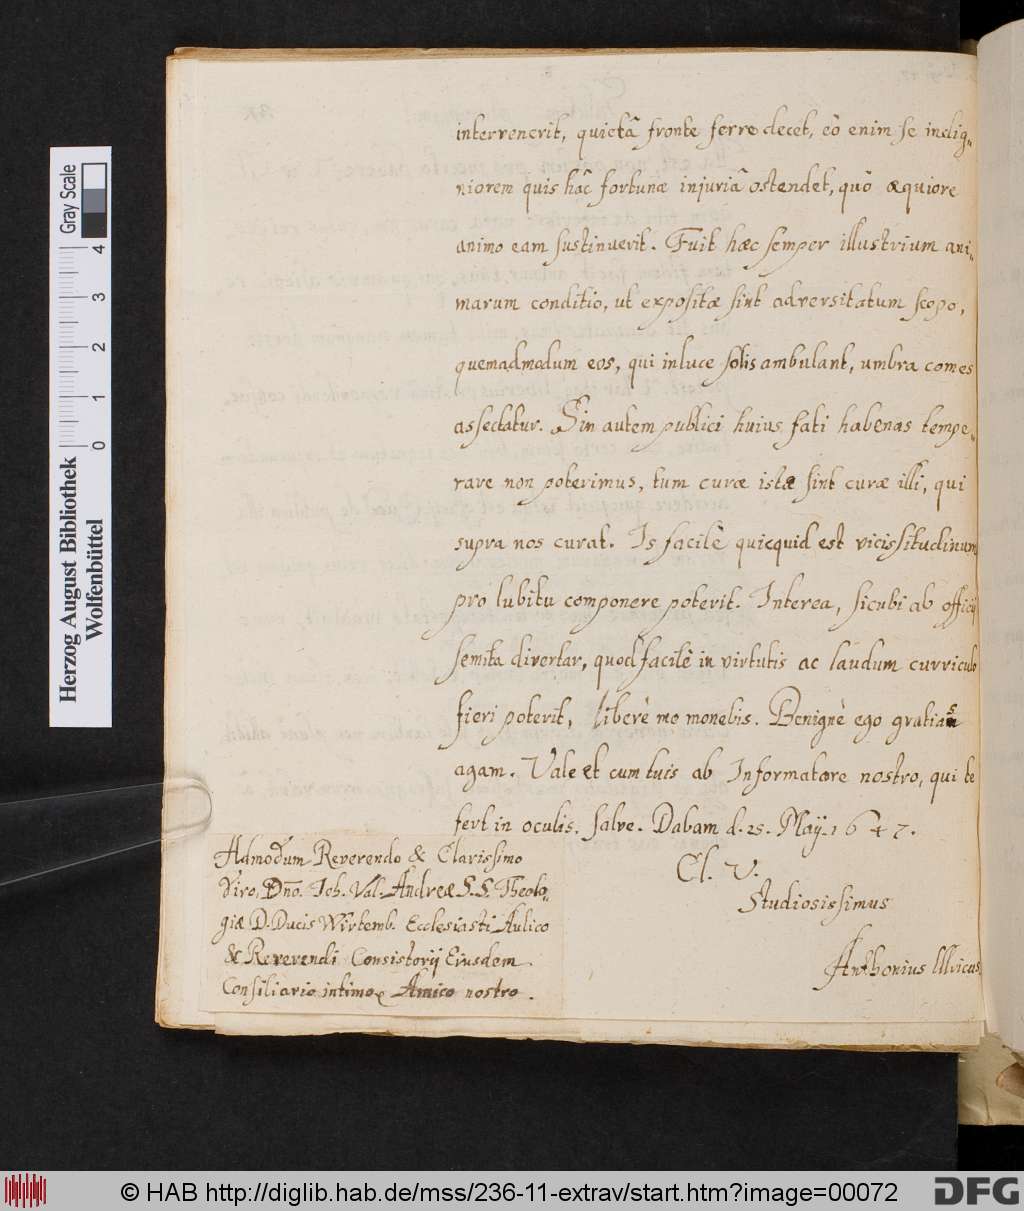 interrenerit, quietâ fronte ferre decet, eò enim se indig-
niorem quis hâc fortunæ injuriâ ostendet, quò æquiore
animo eam sustinuerit. Fuit hæc semper illustrium ani-
marum conditio, ut expositæ sint adversitatum scopo,
quemadmodum eos, qui in luce solis ambulant, umbra comes
assectatur. Sin autem publici huius fati habenas tempe-
rare non poterimus, tum curæ istæ sint curæ illi, qui
supra nos curat. Is facilè quicquid est vicissitudinum
pro lubitu componere poterit. Interea, sicubi ab officij
semita divertar, quod facilè in virtutis ac laudum curriculo
fieri poterit, liberè me monebis. Benignè ego gratias
agam. Vale et cum tuis ab Informatore nostro, qui te
fert in oculis. Salve. Dabam d. 25. Maij. 1647.
Cl. V.
Studiosissimus
Anthonius Ulricus
Admodum Reverendo & Clarissimo
Viro, Dno. Joh. Val. Andreæ S. S. Theolo-
giæ D. Ducis Wirtemb. Ecclesiasti Aulico
& Reverendi Consistorij Eiusdem
Consiliario intimo, Amico nostro.
Herzog August Bibliothek
Wolfenbüttel
Gray Scale
0 1 2 3 4
© HAB http://diglib.hab.de/mss/236-11-extrav/start.htm?image=00072
DFG